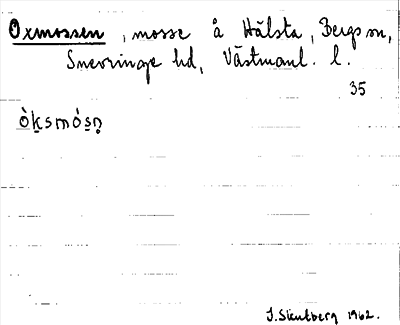 Oxmossen, mosse å Hälsta, Bergs sn,
Snevringe hd, Västmanl. l.
35
òk̲smós̲n̥
1962.